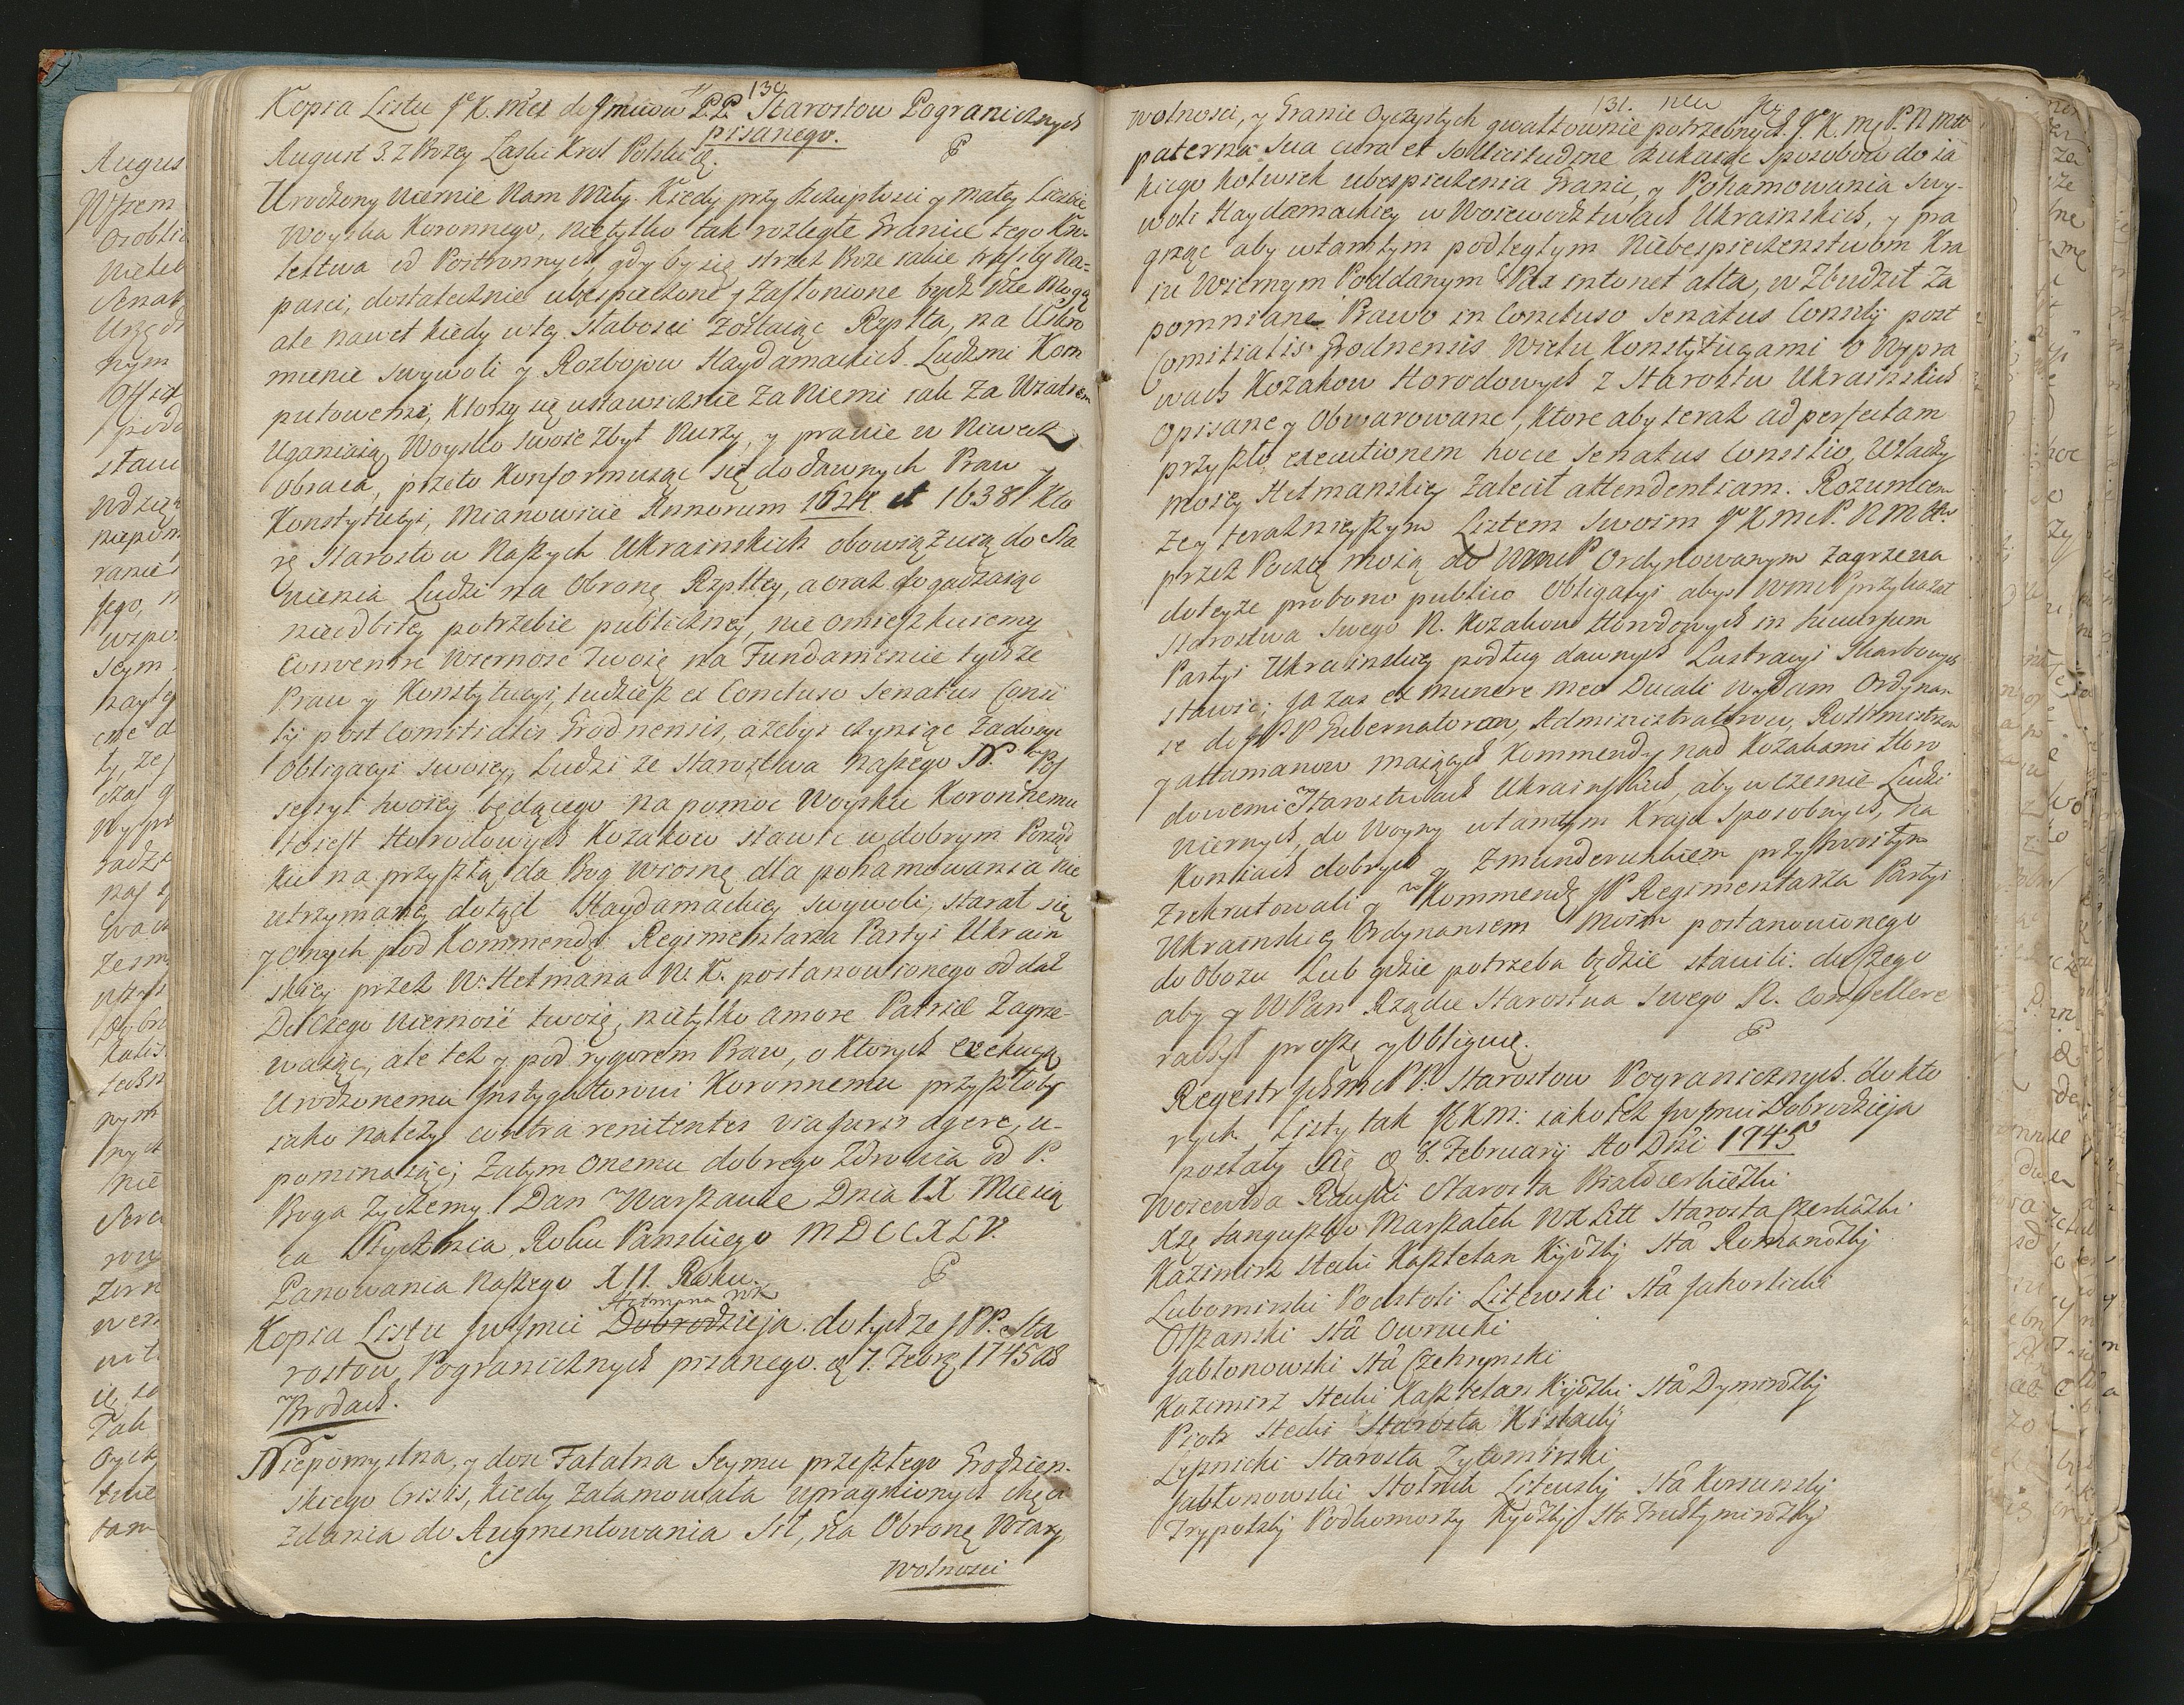 130
Kopia Listu JeK. Mci do Jmciów P.P. Starostow Pogranicznych
pisanego.
August 3. z Bozey Łaski Krol Polski &.
Urodzony Wiernie Nam Miły. Kiedy przy szczupłosci y małey Liczbie
Woyska Koronnego, nietylko tak rozległe Granice tego Kro-
lestwa od Postronnych, gdyby się strzesz Boze iakie trafiły Na-
pasci, dostatecznie ubespieczone y zasłonione bydz nie mogą
ale nawet kiedy w tey słabosci zostaiąc Rzplta, na Uskro
mienie swywoli y Rozboiow Haydamackich Ludzmi Kom
putowemi, ktorzy się ustawicznie za niemi iak za Wiatrem
Uganiaią, Woysko swoie zbyt nuzy, y prawie w niwecz
obraca, przeto konformuiąc się do dawnych Praw y
Konstytucyi, mianowicie Annorum 1624. et 1638 Kto
re Starostow Naszych Ukrainskich obowiązuią do Sta
wienia Ludzi na Obronę Rzpltey, a oraz dogadzaiąc
nieodbitey potrzebie publiczney, nie omieszkuiemy
Convenire Wiernosc Twoię na Fundamencie tychze
Praw y Konstytucyi, tudziesz ex Concluso Senatus Consi
lij post Comitialis Grodnensis, azebys czyniąc zadosyc
Obligacyi swoiey, Ludzi ze Starostwa Naszego N. w Pos
sessyi twoiey będącego na pomoc Woysku Koronnemu
to iest Horodowych Kozakow stawic w dobrym Porząd
ku na przyszłą da Bog wiosnę dla pohamowania nie
utrzymaney dotąd Haydamackiey swywoli, starał się
y onych pod Kommendę Regimentarza Partyi Ukrain
skiey przez W. Hetmana W. K. postanowionego oddał
Do czego wiernosc twoię, nietylko amore Patriæ zagrze-
waiąc, ale tez y pod rygorem Praw, o ktorych exekucyą
Urodzonemu Instygatorowi Koronnemu przyszłoby
iako nalezy contra renitentes via Juris agere, u-
pominaiąc; Zatym onemu dobrego zdrowia od P.
Boga zyczemy. Dan w Warszawie Dnia IX Miesią
ca Stycznia Roku Panskiego MDCCXLV.
Panowania Naszego XII. Roku.
Hetmana WK
Kopia Listu JwJmci Dobrodzieja do tychze JPP. Sta
rostow Pogranicznych pisanego. d. 7. Febr. 1745 w
Brodach.
Niepomyslna, y dosc Fatalna Seymu przeszłego Grodzien-
skiego Crisis, kiedy zatamowała upragnionych chęci
zdania do Augmentowania Sił, na Obronę Wiary
Wolnosci
131.
wolnosci, y Granic Oyczystych gwałtownie potrzebnych. JeK. Mć P. N. Mćwy
paterna sua cura et sollicitudine szukaiąc sposobow do ia
kiego kolwiek ubespieczenia Granic, y Pohamowania swy-
woli Haydamackiey w Woiewodztwach Ukrainskich, y pra
gnąc aby w tamtym podległym niebespieczenstwom Kra
iu Wiernym Poddanym Pax intonet alta, wzbudził za
pomniane Prawo in Concluso Senatus Consilij post
Comitialis Grodnensis Wielu Konstytucyami o Wypra
wach Kozakow Horodowych z Starostw Ukrainskich
Opisane y Obwarowane, ktore aby teraz ad perfectam
przyszło executionem hocce Senatus Consilio, Władzy
moiey Hetmanskiey zalecił attendentiam. Rozumiem
ze y teraznieyszym Listem swoim JeKMć P. N. M.
przez Pocztę moią do WmćP Ordynowanym zagrzewa
do teyze pro bono publico Obligacyi abys WmćP przykazał
Starostwa swego N. Kozakow Horodowych in succursum
Partyi Ukrainskiey podług dawnych Lustracyi Skarbowych
stawic; Ja zas ex munere meo Ducali wydam Ordynan
se do JPP Gubernatorow, Administratorow, Rotmistrzow
y attamanow maiących Kommendy nad Kozakami Horo
dowemi w Starostwach Ukrainskich, aby w czesnie Ludzi
wiernych, do Woyny w tamtym Kraju sposobnych, na
koniach dobrych y z munderunkiem przyzwoitym
zrekrutowali y w Kommendę JP Regimentarza Partyi
Ukrainskiey Ordynansem moim postanowionego
do Obozu Lub gdzie potrzeba będzie stawili. do czego
aby y WPan Rządcę Starostwa swego N. Compellere
raczył proszę y Obliguię.
Regestr JchmćPP. Starostow Pogranicznych do kto
rych Listy tak JKKm: iako tez JwJmci Dobrodzieja
posłały się d 8. Februarij Ao Dni 1745
Woiewoda Ruski Starosta Białocerkiewski
Xżę Sanguszko Marszałek WX Litt Starosta Czerkaski
Kazimirz Stecki Kasztelan Kijowski Sta Romanowski
Lubomirski Podstoli Litewski Sta Jahorlicki
Olszanski Sta Owrucki
Jabłonowski Sta Czehrynski
Kazimirz Stecki Kasztelan Kijowski Sta Dymirski
Piotr Stecki Starosta
Starosta Zytomirski
Jabłonowski Stolnik Litewski Sta Korsunski
Trypolski Podkomorzy Kijowski Sta Trechtymirowski